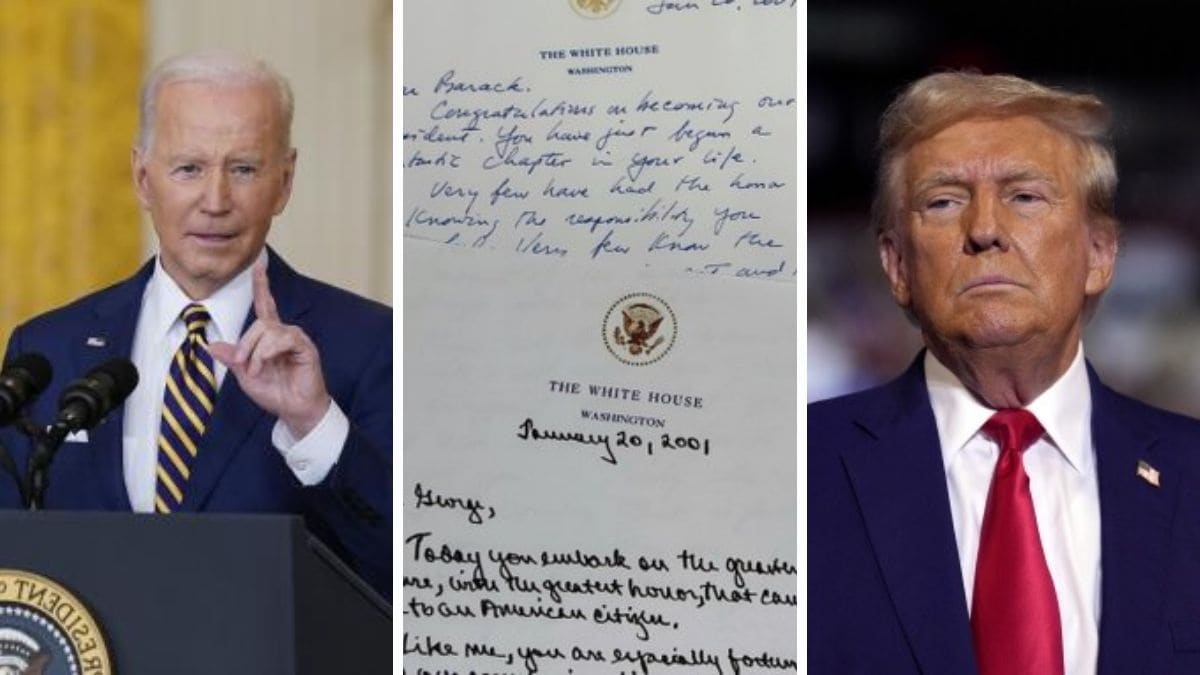 PRESIDENT
Jan 20,
THE WHITE HOUSE
WASHINGTON
Barack.
Congratulations on becoming our
sident. You have just begun a
tastic chapter in your life.
Very few have had the honor
Knowing the responsibility you
Very few know the
and
THE WHITE HOUSE
WASHINGTON
January 20, 2001
George,
Today you embark on the greates
re, with the greatest honor, that can
to an American citizen.
Like me, you are especially fortun